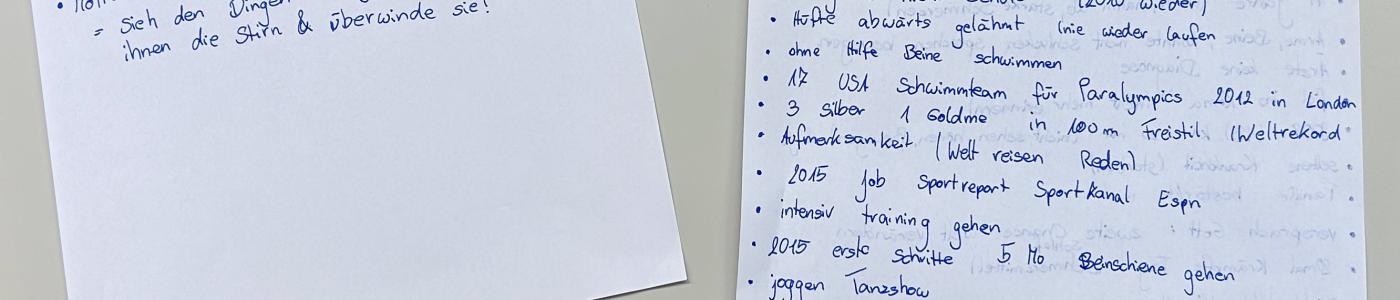 = sieh den Dingen
ihnen die Stirn & überwinde sie!
(2010 wieder)
• Hüfte abwärts gelähmt (nie wieder laufen
• ohne Hilfe Beine schwimmen
• 17 USA Schwimmteam für Paralympics 2012 in London
• 3 Silber 1 Goldme in 100m Freistil (Weltrekord
• Aufmerksamkeit (Welt reisen Reden)
• 2015 Job Sportreport Sportkanal Espn
• intensiv training gehen
• 2015 erste Schritte 5 Mo Beinschiene gehen
• joggen Tanzshow